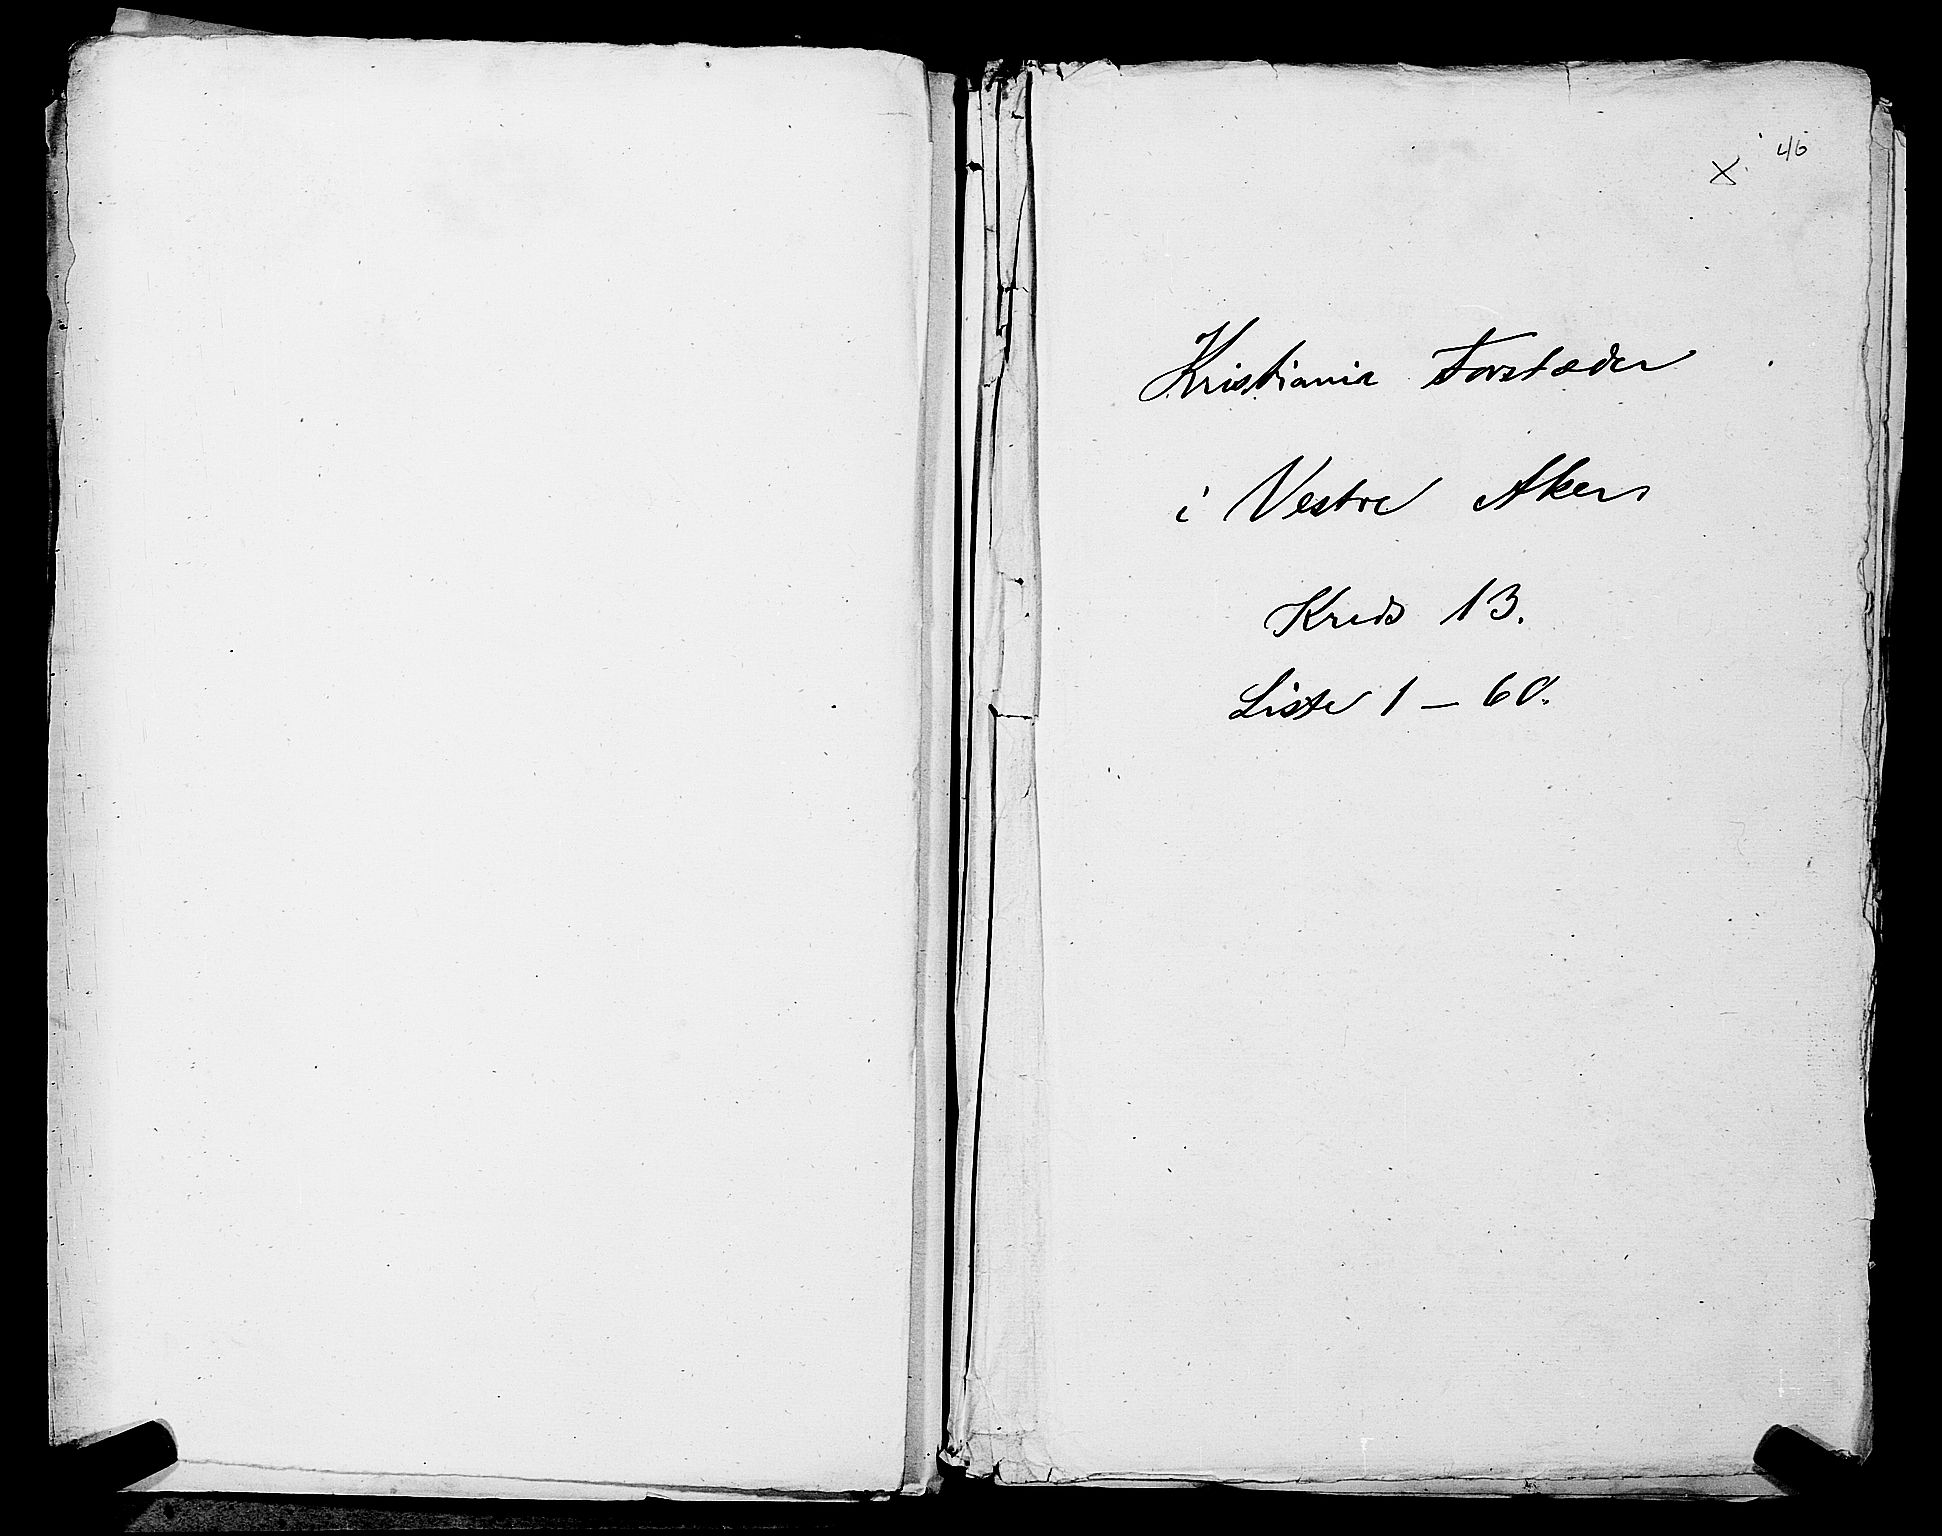 X. 46
Kristiania Forstæder
i Vestre Aker
Kreds 13.
Liste 1 – 60.